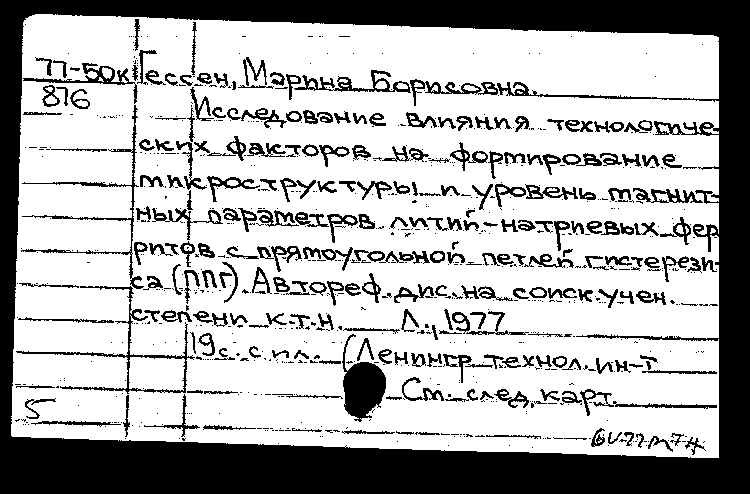 77-50к Гессен, Марина Борисовна.
876
Исследование влияния технологиче-
ских факторов на формирование
микроструктуры и уровень магнит-
ных параметров литий-натриевых фер
ритов с прямоугольной петлей гистерези-
са (ППГ). Автореф. дис. на соиск. учен.
степени к.т.н. Л., 1977
19с. с ил. (Ленингр. технол. ин-т
См. след. карт.
5